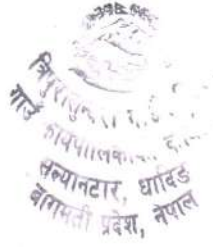 त्रिपुरासुन्दरी
गाउँ कार्यपालिकाको
सल्यानटार, धादिङ
बागमती प्रदेश, नेपाल